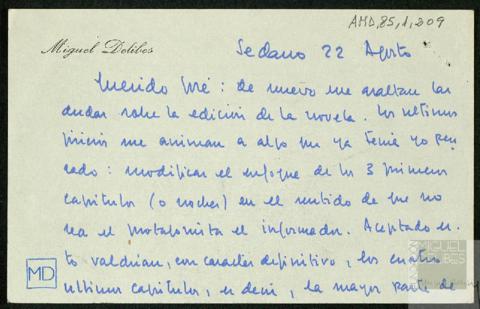 AMD,85,1,209
Miguel Delibes
Sedano 22 Agosto
Querido José : de nuevo me asaltan las
dudas sobre la edición de la novela. Los ultimos
juicios me animan a algo que ya tenía yo pen
sado : modificar el enfoque de los 3 primeros
capitulos (o noches) en el sentido de que no
sea el protagonista el informador. Aceptado es
to valdrían, con caracter definitivo, los cuatro
ultimos capitulos, es decir, la mayor parte de
MD
MIGUEL
DELIBES